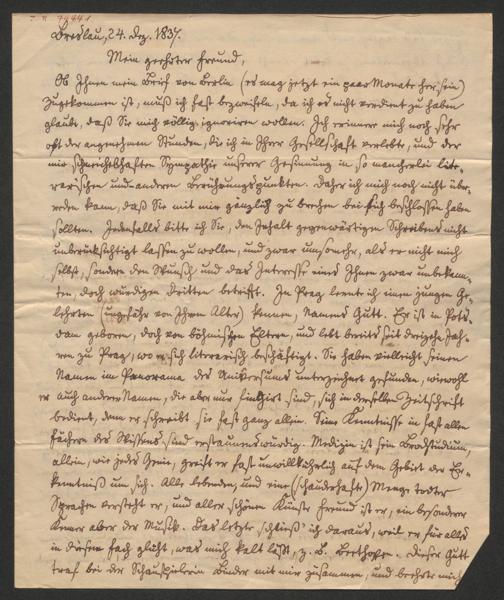 I. N. 79441
Breslau, 24. Dez. 1837.
Mein geehrter Freund,
Ob Ihnen mein Brief von Berlin (es mag jetzt ein paar Monate her sein)
zugekommen ist, muß ich fast bezweifeln, da ich es nicht verdient zu haben
glaube, daß Sie mich völlig ignoriren wollen. Ich erinnere mich noch sehr
oft der angenehmen Stunden, die ich in Ihrer Gesellschaft verlebte, und der
mir schmeichelhaften Sympathie unserer Gesinnung in so mancherlei lite-
rarischen und anderen Berührungspunkten. Daher ich mich noch nicht über-
reden kann, daß Sie mit mir gänzlich zu brechen bei sich beschlossen haben
sollten. Jedenfalls bitte ich Sie, den Inhalt gegenwärtigen Schreibens nicht
unberücksichtigt lassen zu wollen, und zwar umsomehr, als er nicht mich
selbst, sondern den Wunsch und das Interesse eines Ihnen zwar unbekann-
ten, doch würdigen Dritten betrifft. In Prag lernte ich einen jungen Ge-
lehrten (ungefähr von Ihrem Alter) kennen, Namens Gütt. Er ist in Pots-
dam geboren, doch von böhmischen Eltern, und lebt bereits seit dreizehn Jah-
ren zu Prag, wo er sich literarisch beschäftigt. Sie haben vielleicht seinen
Namen im Panorama des Universums unterzeichnet gefunden, wiewohl
er auch anderer Namen, die aber nur fingirt sind, sich in derselben Zeitschrift
bedient, denn er schreibt sie fast ganz allein. Seine Kenntnisse in fast allen
Fächern des Wissens sind erstaunenswürdig. Medizin ist sein Brodstudium,
allein, wie jedes Genie, greift er fast unwillkührlich auf dem Gebiet der Er-
kenntniß um sich. Alle lebenden, und eine (schauderhafte) Menge todter
Sprachen versteht er, und aller schönen Künste Freund ist er, ein besonderer
Kenner aber der Musik. Das letztre schließ' ich daraus, weil er für alles
in diesem Fach glüht, was mich kalt läßt, z. B. Beethoven. Dieser Gütt
traf bei der Schauspielerin Binder mit mir zusammen, und beehrte mich